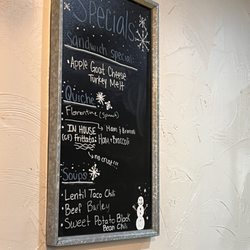 Specials
Sandwich special:
• Apple Goat Cheese
Turkey Melt
Quiche
• Florentine (Spinach)
• IN HOUSE → Ham & Broccoli
(GF) Frittata: Ham + Broccoli
↳ no crust
Soups
• Lentil Taco Chili
• Beef Barley
• Sweet Potato Black
Bean Chili